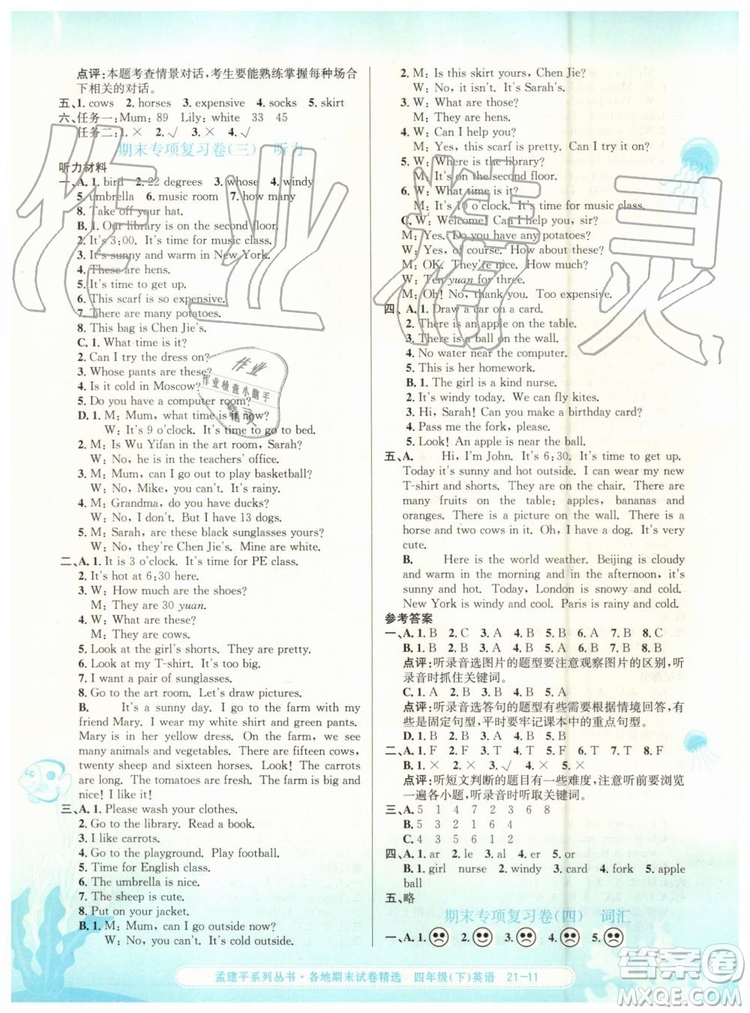 点评：本题考查情景对话，考生要能熟练掌握每种场合
下相关的对话。
五、1. cows 2. horses 3. expensive 4. socks 5. skirt
六、任务一：Mum：89 Lily：white 33 45
任务二：1. × 2. √ 3. √
期末专项复习卷（三） 听力
听力材料
一、A. 1. bird 2. 22 degrees 3. whose 4. windy
5. umbrella 6. music room 7. how many
8. Take off your hat.
B. 1. Our library is on the second floor.
2. It's 3：00. It's time for music class.
3. It's sunny and warm in New York.
4. These are hens.
5. It's time to get up.
6. This scarf is so expensive.
7. There are many potatoes.
8. This bag is Chen Jie's.
C. 1. What time is it?
2. Can I try the dress on?
3. Whose pants are these?
4. Is it cold in Moscow?
5. Do you have a computer room?
D. 1. M：Mum, what time is it now?
W：It's 9 o'clock. It's time to go to bed.
2. M：Is Wu Yifan in the art room, Sarah?
W：No, he is in the teachers' office.
3. M：Mum, can I go out to play basketball?
W：No, Mike, you can't. It's rainy.
4. M：Grandma, do you have ducks?
W：No, I don't. But I have 13 dogs.
5. M：Sarah, are these black sunglasses yours?
W：No, they're Chen Jie's. Mine are white.
二、A. 1. It is 3 o'clock. It's time for PE class.
2. It's hot at 6：30 this evening.
3. W：How much are the shoes?
M：They are 30 yuan.
4. W：What are these?
M：They are cows.
5. Look at the girl's shorts. They are nice.
6. Look at my T-shirt. It's too big.
7. I want a pair of sunglasses.
8. Go to the art room. Let's draw pictures.
B. It's a sunny day. I go to the farm with my
friend Mary. I wear my white shirt and green pants.
Mary is in her yellow dress. On the farm, we see
many animals and vegetables. There are fifteen cows,
twenty sheep and sixteen horses. Look! The carrots
are long. The tomatoes are fresh. The farm is big and
nice. I like it!
三、A. 1. Please wash your clothes.
2. Go to the library. Read a book.
3. I like carrots.
4. Go to the playground. Play football.
5. Time for English class.
6. The umbrella is nice.
7. The sheep is cute.
8. Put on your jacket.
B. 1. M：Mum, can I go outside now?
W：No, you can't. It's cold outside.
2. M：Is this skirt yours, Chen Jie?
W：No, it isn't. It's Sarah's.
3. W：What are these?
M：They are hens.
4. W：Can I help you?
M：Yes, this shirt is too small for me.
5. W：Where is the library?
M：It's on the second floor.
6. W：What time is it?
M：It's 10 o'clock. It's time to go home.
C. W：Welcome! Can I help you, sir?
M：Yes. Do you have any potatoes?
W：Yes, of course. How about these?
M：OK. They're nice. How much?
W：Ten yuan for three.
M：Oh! How nice! Thank you!
四、A. 1. Draw a car on a card.
2. There is a girl in the first picture.
3. There is a ball on the wall.
4. No water near the computer.
5. This is her homework.
B. 1. The girl is a kind nurse.
2. It's windy today. We can fly kites.
3. Hi, Sarah! Can you make a birthday card?
4. Pass me the fork, please.
5. Look! An apple is near the ball.
五、A. Hi, I'm John. It's 6：30. It's time to get up.
Today it's sunny and hot outside. I can wear my new
T-shirt and shorts. They are nice and cool. There are
many fruits on the table：apples, bananas and
oranges. There is a picture on the wall. There is a
horse and two cows in it. Oh, I have a dog. It's very
cute.
B. Here is the world weather. Beijing is cloudy
and warm in the morning and in the afternoon, it's
windy and cool. Sydney is hot and sunny today.
New York is windy and cool. Paris is rainy and cold.
参考答案
一、A. 1. B 2. C 3. C 4. B 5. B 6. A 7. B 8. A
B. 1. B 2. B 3. A 4. B 5. B 6. A 7. A 8. A
点评：听录音选图片的题型要注意观察图片的区别，听
录音时抓住关键词。
C. 1. A 2. A 3. A 4. B 5. A
点评：听录音选答句的题型有些需要根据情境回答，有
些是固定句型，平时要牢记课本中的重点句型。
二、A. 1. F 2. F 3. T 4. F 5. F 6. T 7. T 8. T
点评：听短文判断的题目有一些难度，活动听前要浏览
一遍各小题，听录音时要抓住关键词。
三、A. 5 1 4 7 2 3 6 8
B. 5 3 2 1 6 4
C. 4 2 6 5 1 3
四、A. 1. ar 2. ir 3. all 4. er 5. or
B. 1. girl nurse 2. windy 3. card 4. fork 5. apple
ball
五、略
期末专项复习卷（四） 词汇
一、A. 1. 2. 3. 4. 5.
孟建平系列丛书·各地期末试卷精选 四年级（下）英语 21-11
作业精灵
作业
作业检查小帮手
精灵
答案圈
MXQE.COM